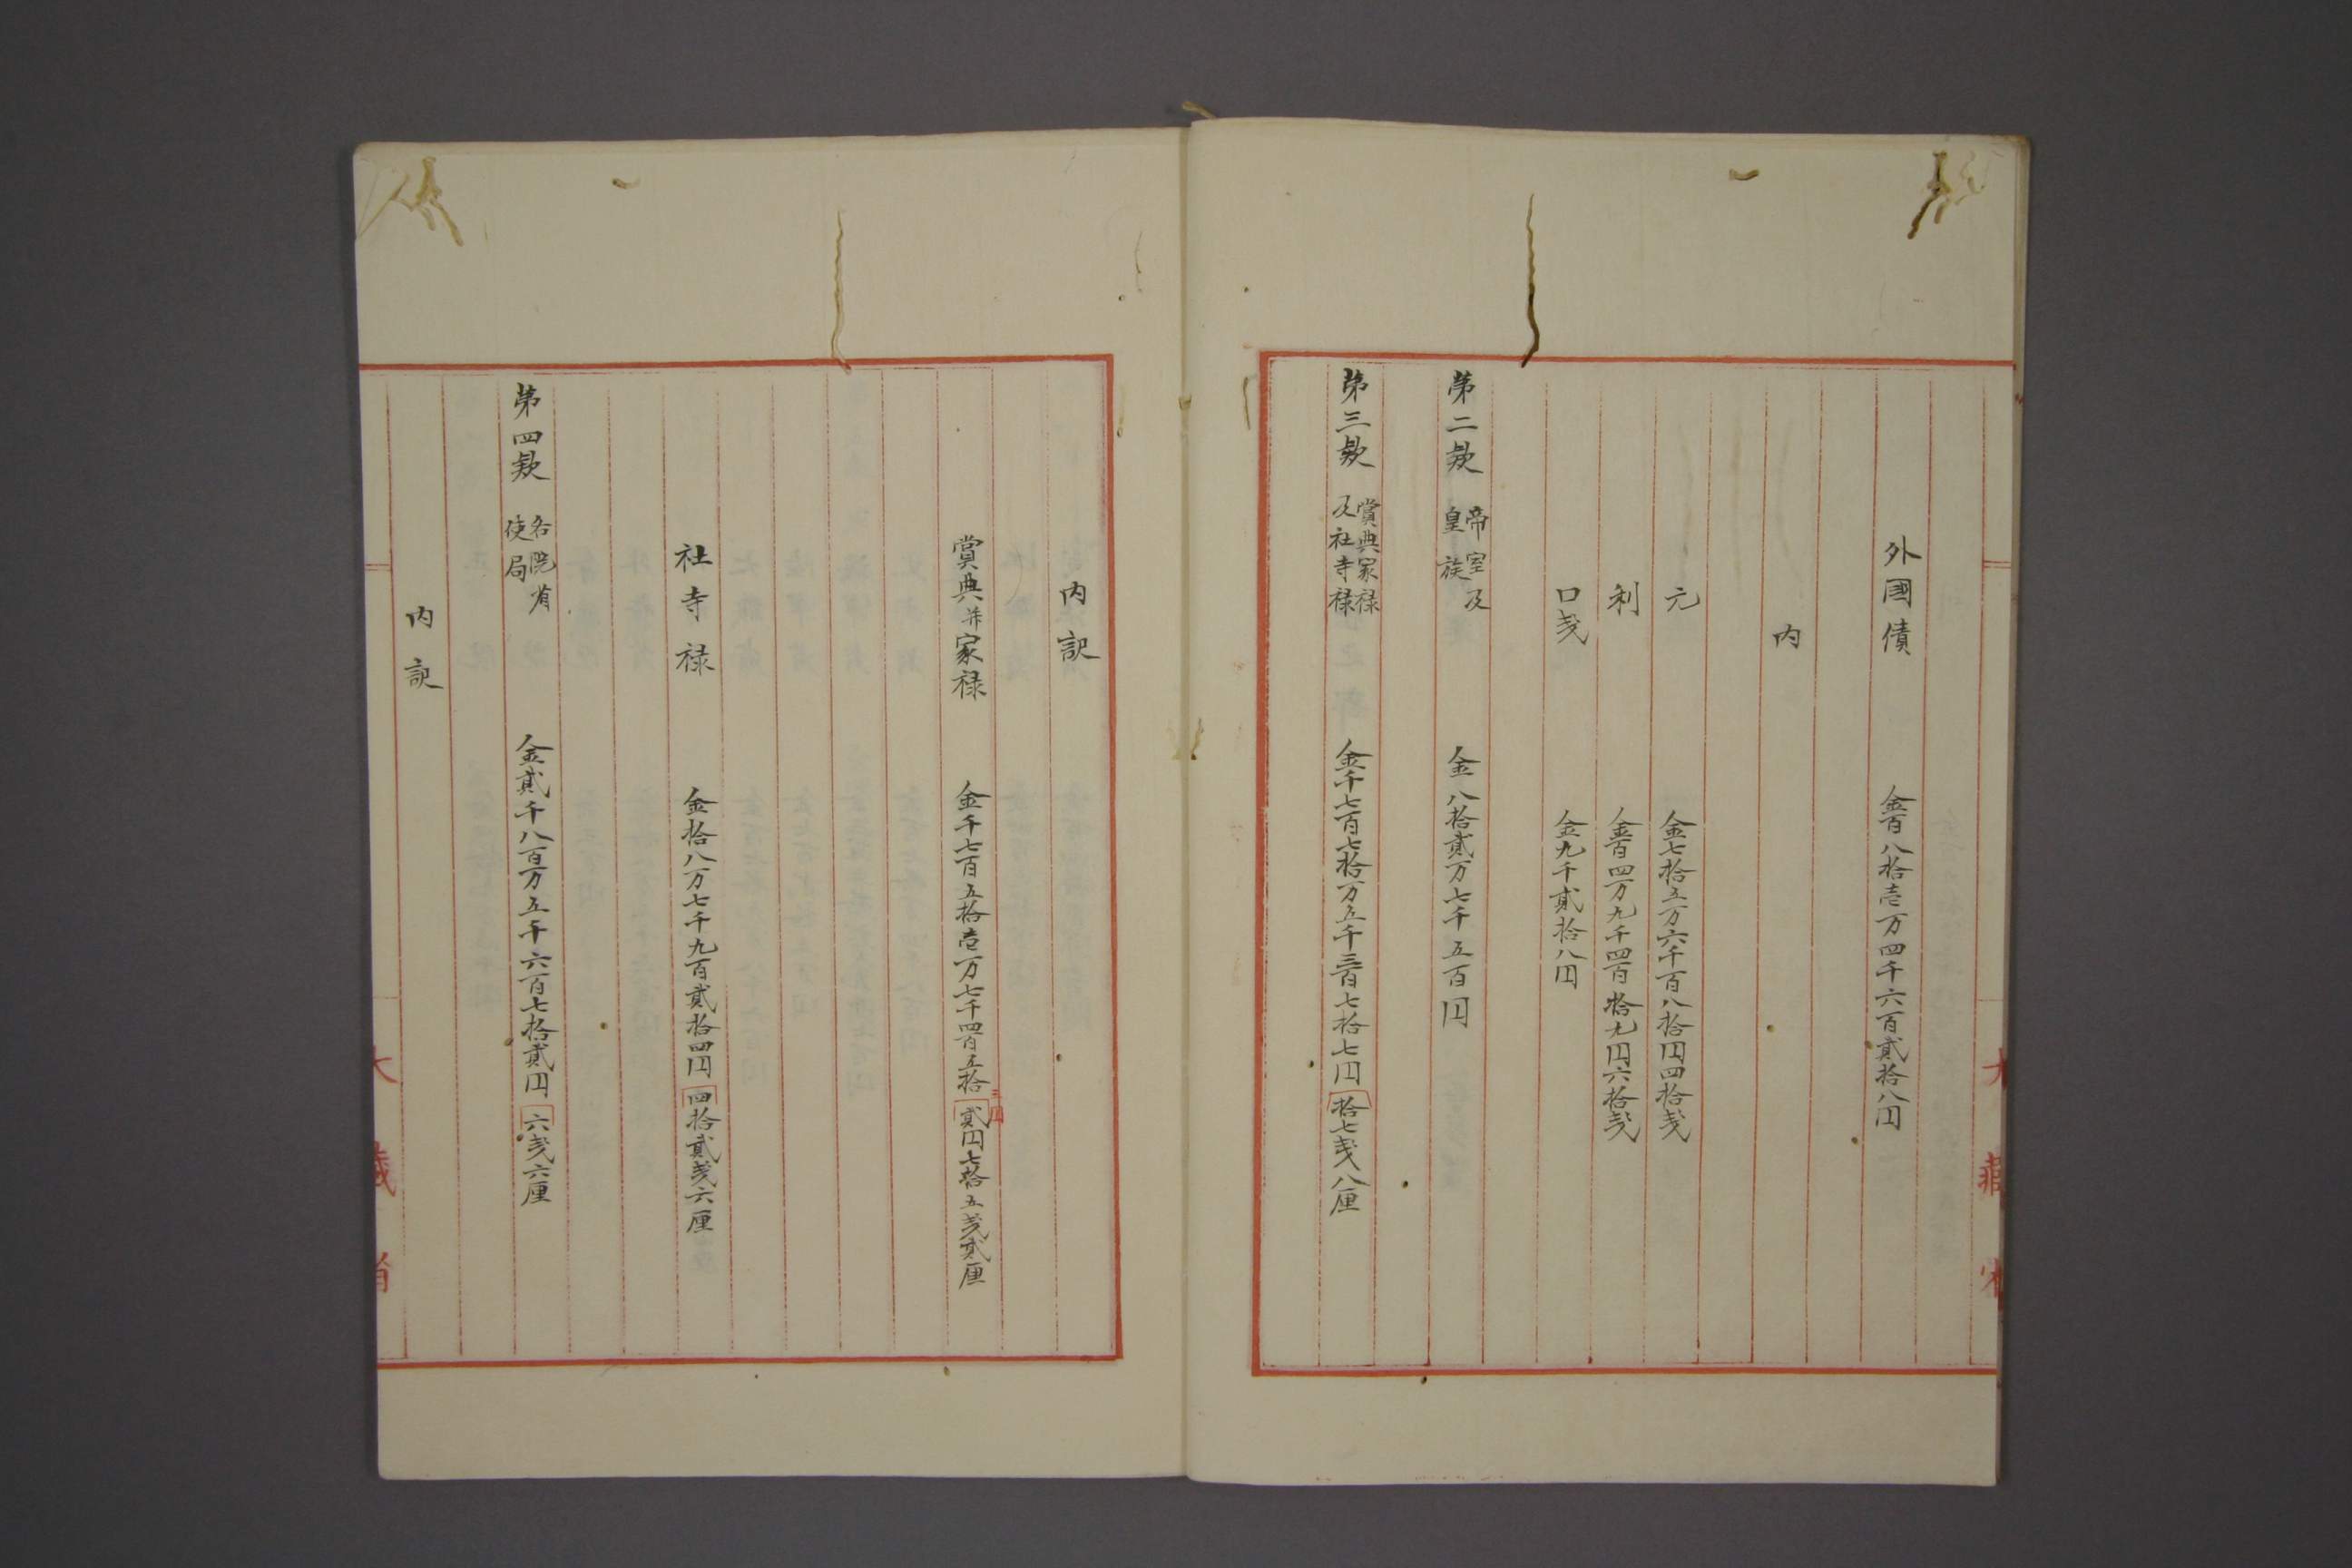 外國債 金百八拾壱万四千六百貳拾八円
内
元 金七拾五万六千百八拾円四拾戔
利 金百四万九千四百拾九円六拾戔
口戔 金九千貳拾八円
第二欵 帝室及皇族 金八拾貳万七千五百円
第三欵 賞典家禄及社寺禄 金千七百七拾万五千三百七拾七円拾七戔八厘
大藏省
内訳
賞典并家禄 金千七百五拾壱万七千四百五拾貳円七拾五戔貳厘
三円
社寺禄 金拾八万七千九百貳拾四円四拾貳戔六厘
第四欵 各院省使局 金貳千八百万五千六百七拾貳円六戔六厘
内訳
大藏省